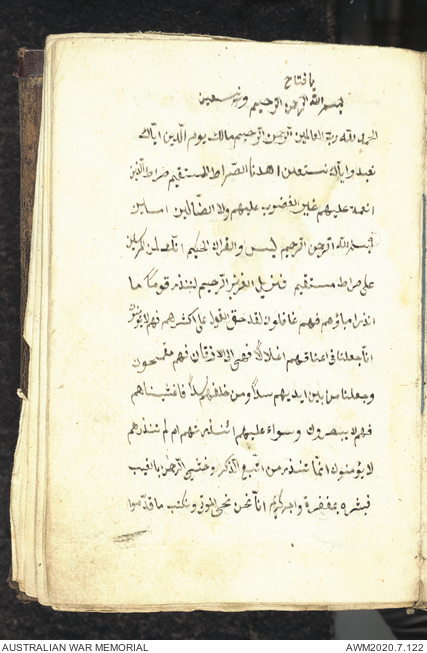 يا فتاح
بسم الله الرحمن الرحيم وبه نستعين
الحمد لله رب العالمين الرحمن الرحيم مالك يوم الدين اياك
نعبد واياك نستعين اهدنا الصراط المستقيم صراط الذين
انعمة عليهم غير المغضوب عليهم ولا الضالين امين
بسم الله الرحمن الرحيم يس والقران الحكيم انك لمن المرسلين
على صراط مستقيم تنزيل العزيز الرحيم لتنذر قوما ما
انذر اباؤهم فهم غافلون لقد حق القول على اكثرهم فهم لا يؤمنون
انا جعلنا في اعناقهم اغلالا فهي الى الاذقان فهم مقمحون
وجعلنا من بين ايديهم سدا ومن خلفهم سدا فاغشيناهم
فهم لا يبصرون وسواء عليهم ائنذرتهم ام لم تنذرهم
لا يؤمنون انما تنذر من اتبع الذكر وخشي الرحمن بالغيب
فبشره بمغفرة واجر كريم انا نحن نحي الموتى ونكتب ما قدموا
AUSTRALIAN WAR MEMORIAL
AWM2020.7.122